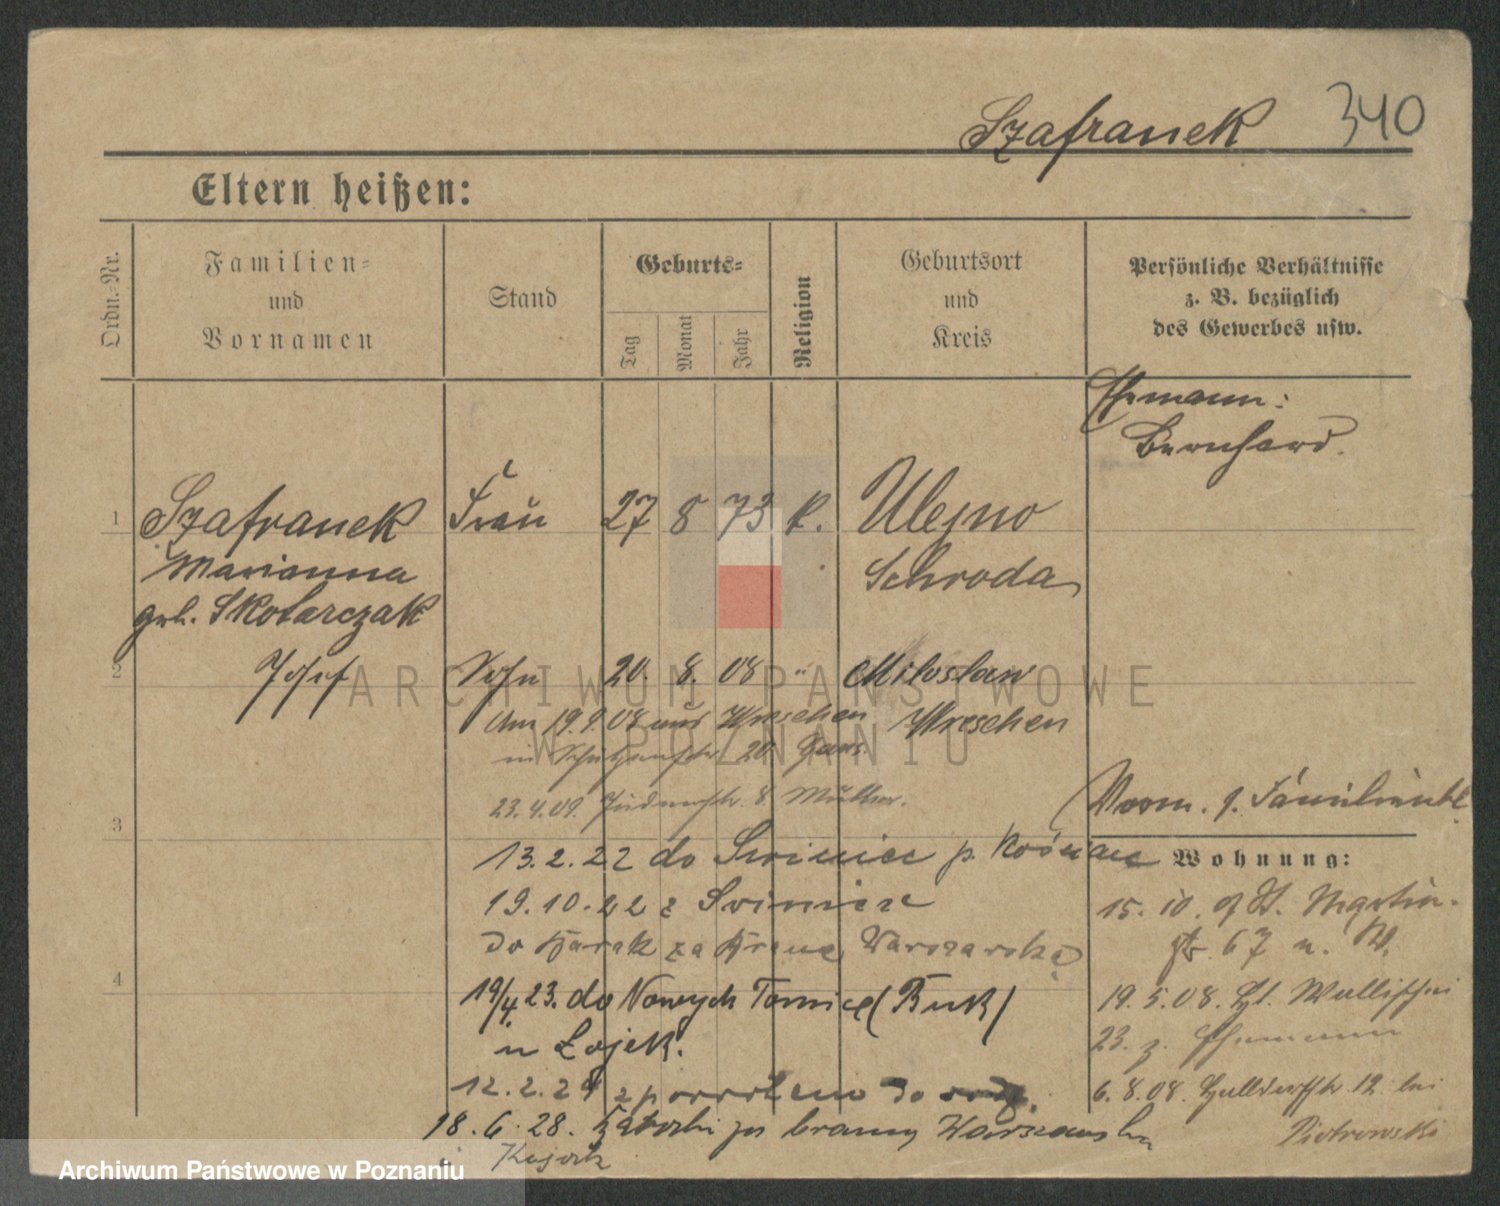 Szafranek 340
Eltern heißen:
Ordn.-Nr.
Familien-
und
Vornamen
Stand
Geburts-
Tag
Monat
Jahr
Religion
Geburtsort
und
Kreis
Persönliche Verhältnisse
z. B. bezüglich
des Gewerbes usw.
Ehemann:
Bernhard.
1 Szafranek Frau 27 8 73 k. Ulejno
Marianna Schroda
geb. Skotarczak
2 Josef Sohn 20. 8. 08 " Miloslaw
Am 19.9.08 aus Wreschen Wreschen
in Schützenstr. 20
23.4.09. Judenstr. 8 Müller.
3
13.2.22 do p.
19.10.22 z
do Barak za Bramą Warszawską
4
19/4 23. do Nowych Tomice (Buk)
u Łojek.
12.2.24 z powrotem do
18.6.28. Baraki za bramą Warszawską
Wohnung:
15. 10. 07 St. Martin-
str. 67 u. W.
19.5.08. Wallischei
23. z. Ehemann
6.8.08. 12 bei
Piotrowski
ARCHIWUM PAŃSTWOWE
W POZNANIU
Archiwum Państwowe w Poznaniu